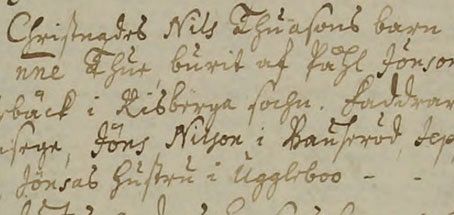 Christnades Nils Thuasons barn
nne Thue, burit af Påhl Jönson
bäck i Risberga sochn. faddrar
sege, Jöns Nilson i Bauseröd, Jep
Jönsas hustru i Uggleboo - -